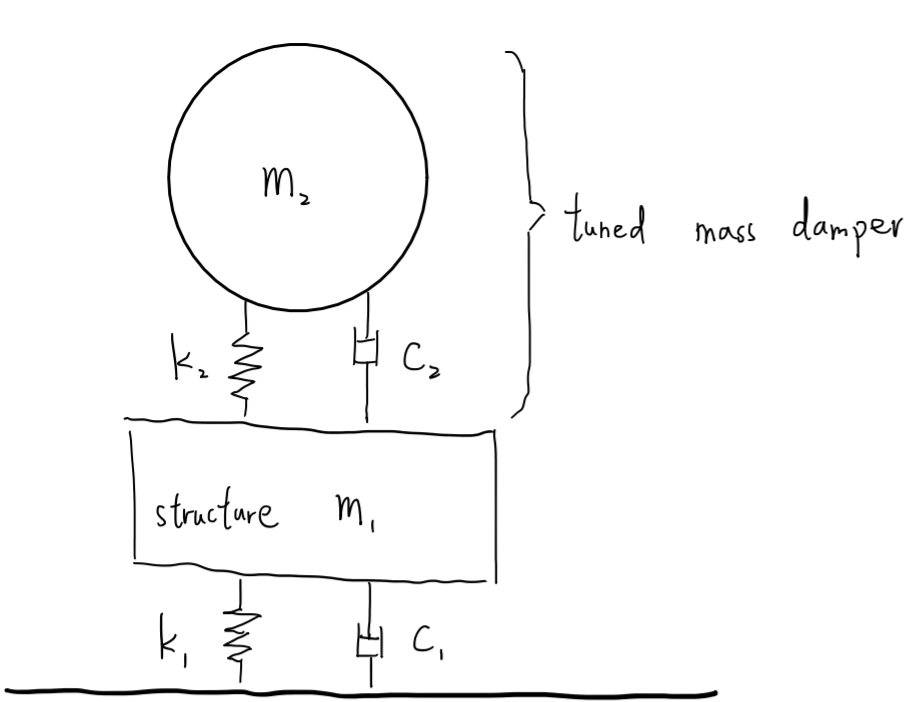 m₂
tuned mass damper
k₂
C₂
structure m₁
k₁
C₁